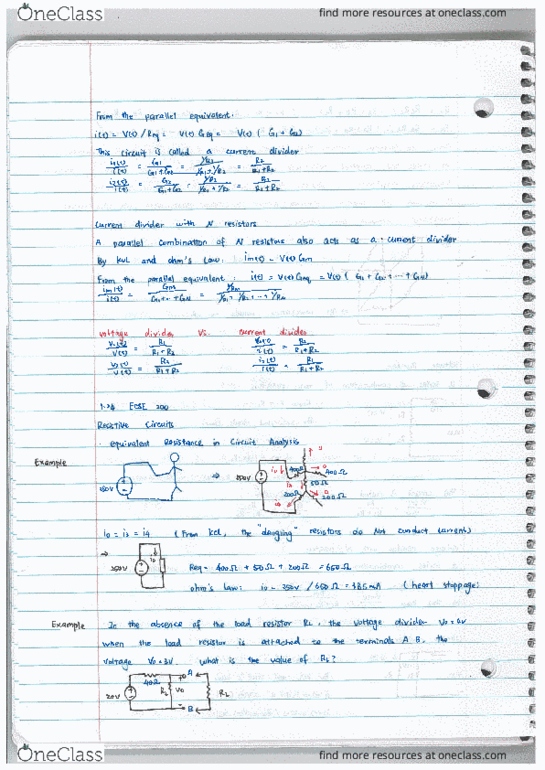 OneClass
find more resources at oneclass.com
From the parallel equivalent.
i(t) = V(t) / Req = V(t) Geq = V(t) ( G1 + G2)
This circuit is called a current divider
i1(t)/i(t) = G1/(G1+G2) = (1/R1)/(1/R1+1/R2) = R2/(R1+R2)
i2(t)/i(t) = G2/(G1+G2) = = R1/(R1+R2)
Current divider with N resistors
A parallel combination of N resistors also acts as a current divider
By KVL and ohm's Law: im(t) = V(t) Gm
From the parallel equivalent : i(t) = V(t) Geq = V(t) ( G1 + G2 + ... + GN)
im(t)/i(t) = Gm/(G1+...+GN) =
Voltage divider Vs. Current divider
V1(t)/V(t) = R1/(R1+R2) = R2/(R1+R2)
V2(t)/V(t) = R2/(R1+R2) i2(t)/i(t) = R1/(R1+R2)
ECSE 200
Resistive Circuits
· equivalent Resistance in Circuit Analysis
Example
⇒
250V
400Ω
50Ω
200Ω
200Ω
i0 = i3 = i4 (From KCL, the "dangling" resistors do Not conduct current)
⇒
250V
Req = 400Ω + 50Ω + 200Ω = 650Ω
ohm's Law: i0 = 250V / 650Ω = 385mA (heart stoppage)
Example
In the absence of the load resistor RL, the voltage divider V0 = 4V
when the load resistor is attached to the terminals A B, the
voltage V0 = 3V. What is the value of RL?
20V
40Ω
R2
V0
A
B
RL
OneClass
find more resources at oneclass.com